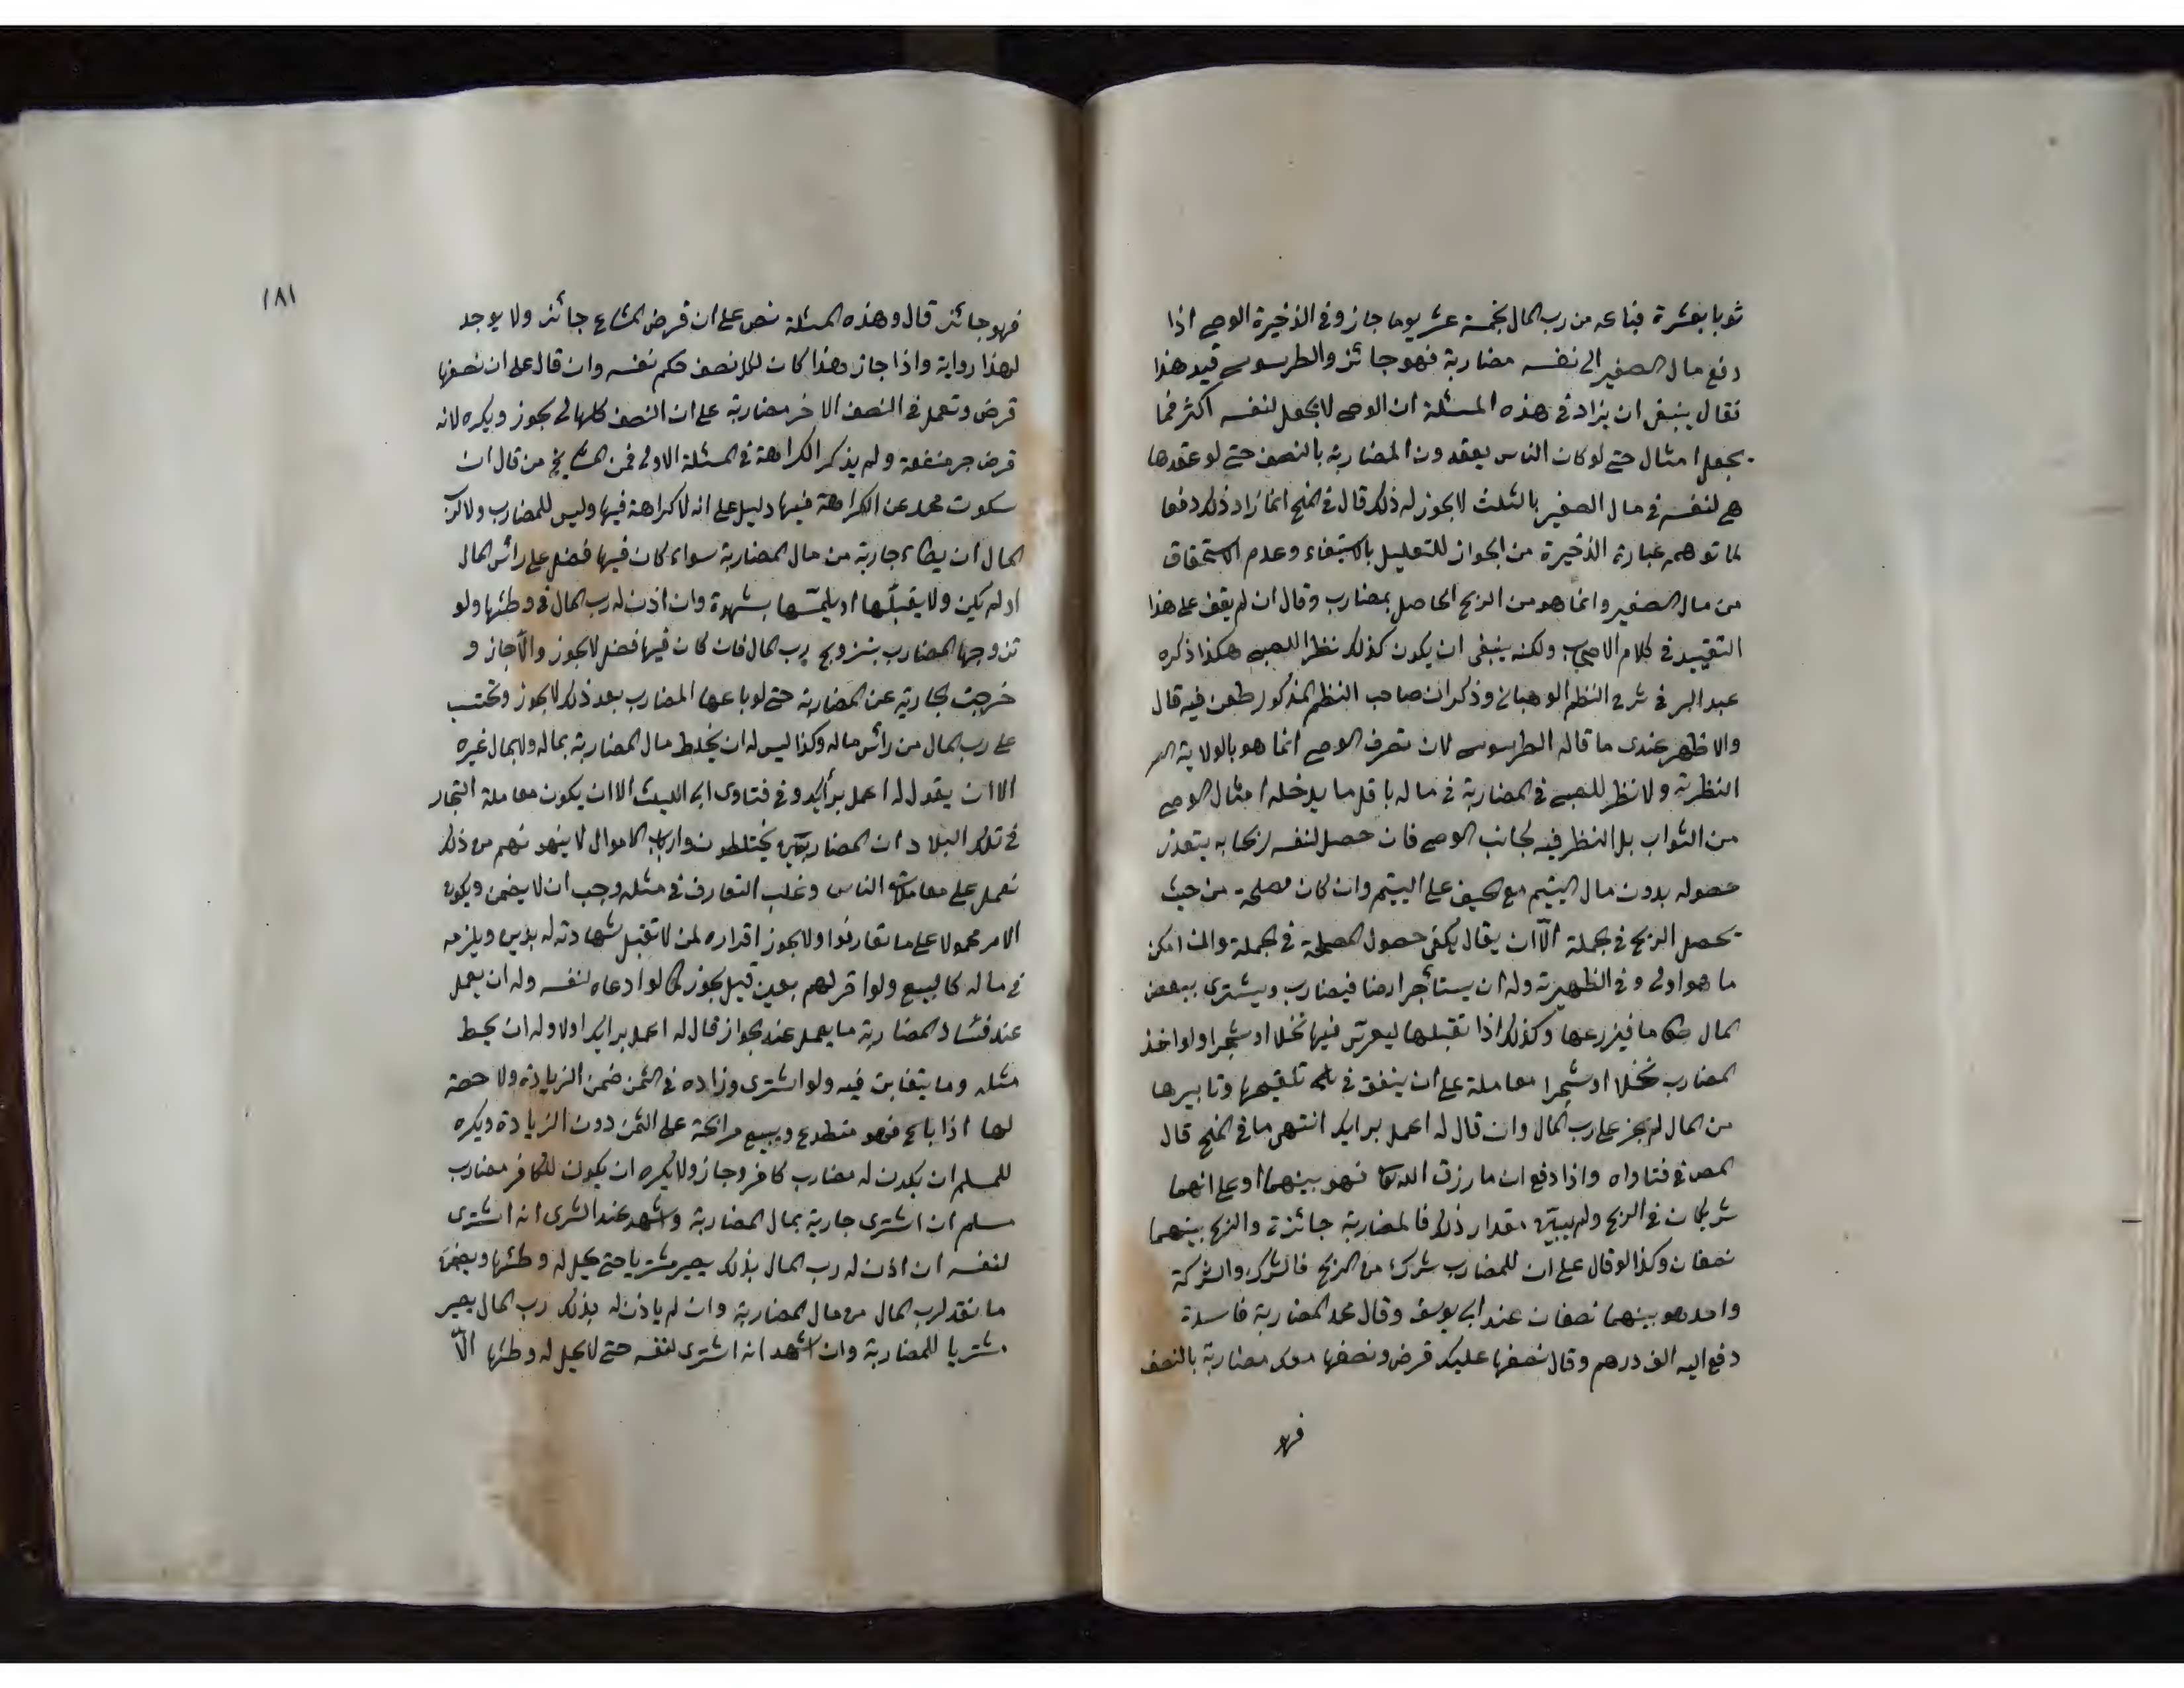 ثوبا بعشرة فباعه من رب المال بخمسة عشر يوما جاز وفي الذخيرة الوصي اذا
دفع مال الصغير الى نفسه مضاربة فهو جائز والطرسوسي قيد هذا
فقال ينبغي ان يزاد في هذه المسئلة ان الوصي لا يجعل لنفسه اكثر مما
يجعل امثاله حتى لو كان الناس يعقدون المضاربة بالنصف حتى لو عقدها
هي لنفسه في مال الصغير بالثلث لا يجوز له ذلك قال في المنح انما زاد ذلك دفعا
لما توهمه عبارة الذخيرة من الجواز للتعليل بالاستيفاء وعدم الاستحقاق
من مال الصغير وانما هو من الربح الحاصل بمضارب وقال ان لم يقف على هذا
التقييد في كلام الاصحاب ولكنه ينبغي ان يكون كذلك نظرا للصبي هكذا ذكره
عبد البر في شرح النظم الوهباني وذكر ان صاحب النظم المذكور طعن فيه قال
والاظهر عندى ما قاله الطرسوسي لان تصرف الوصي انما هو بالولاية
النظرية ولا نظر للصبي في المضاربة في ماله باقل ما يدخله امثال الوصي
من الثواب بل النظر فيه لجانب الوصي فان حصل لنفسه ربحا به يتعذر
حصوله بدون مال اليتيم مع الحيف على اليتيم وان كان مصلحة من حيث
يحصل الربح في الجملة الا ان يقال يكفى حصول المصلحة في الجملة وان امكن
ما هو اولى وفي الظهيرية وله ان يستأجر ارضا فيضارب ويشترى ببعض
المال طعاما فيزرعها وكذلك اذا تقبلها ليغرس فيها نخلا او شجرا ولو اخذ
المضارب نخلا او شجرا معاملة على ان ينفق في تلقيحها وتابيرها
من المال لم يجز على رب المال وان قال له اعمل برايك انتهى ما في المنح قال
المص في فتاواه واذا دفع ان ما رزق الله تعالى فهو بينهما او على انهما
شريكان في الربح ولم يبين مقدار ذلك فالمضاربة جائزة والربح بينهما
نصفان وكذا لو قال على ان للمضارب شرك من الربح فالشرك والشركة
واحد هو بينهما نصفان عند ابى يوسف وقال محمد المضاربة فاسدة
دفع اليه الف درهم وقال نصفها عليك قرض ونصفها معك مضاربة بالنصف
فهو
١٨١
فهو جائز قال وهذه المسئلة نص على ان قرض المشاع جائز ولا يوجد
لهذا رواية واذا جاز هذا كان لكل نصف حكم نفسه وان قال على ان نصفها
قرض وتعمل في النصف الاخر مضاربة على ان النصف كلها لى يجوز ويكره لانه
قرض جر منفعة ولم يذكر الكراهة في المسئلة الاولى فمن المشايخ من قال ان
سكوت محمد عن الكراهة فيها دليل على انه لا كراهة فيها وليس للمضارب ولا لرب
المال ان يطاء جارية من مال المضاربة سواء كان فيها فضل على رأس المال
او لم يكن ولا يقبلها او يلمسها بشهوة وان اذن له رب المال في وطئها ولو
تزوجها المضارب بتزويج رب المال فان كان فيها فضل لا يجوز والا جاز و
خرجت الجارية عن المضاربة حتى لو باعها المضارب بعد ذلك لا يجوز وتحتسب
على رب المال من رأس ماله وكذا ليس له ان يخلط مال المضاربة بماله ولا بمال غيره
الا ان يقول له اعمل برأيك وفي فتاوى ابى الليث الا ان يكون معاملة التجار
في تلك البلاد ان المضاربين يختلطون وارباب الاموال لا ينهونهم من ذلك
فعمل على معاملة الناس وغلب التعارف في مثله وجب ان لا يضمن ويكون
الامر محمولا على ما تعارفوا ولا يجوز اقراره لمن لا تقبل شهادته له بدين ويلزمه
في ماله كالبيع ولو اقر لهم بعين قيل يجوز كما لو ادعاه لنفسه وله ان يعمل
عند فساد المضاربة ما يعمل عند الجواز قال له اعمل برايك اولا وله ان يحط
مثله وما يتغابن فيه ولو اشترى وزاده في الثمن ضمن الزيادة ولا حصة
لها اذا باع فهو متطوع ويبيع مرابحة على الثمن دون الزيادة ويكره
للمسلم ان يكون له مضارب كافر وجاز ولا يكره ان يكون للكافر مضارب
مسلم ان اشترى جارية بمال المضاربة واشهد عند الشرى انه اشترى
لنفسه ان اذن له رب المال بذلك يصير مشتريا حتى يحل له وطئها ويضمن
ما نقد لرب المال من مال المضاربة وان لم ياذن له بذلك رب المال يصير
مشتريا للمضاربة وان اشهد انه اشترى لنفسه حتى لا يحل له وطئها الا